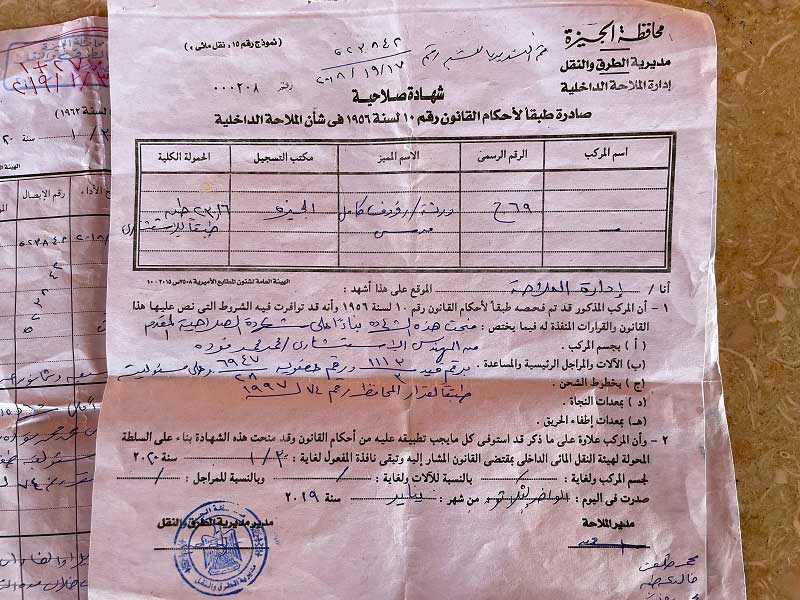 محافظة الجيزة
مديرية الطرق والنقل
إدارة الملاحة الداخلية
(نموذج رقم ١٥، نقل مائى)
٥٢٣٨٤٢
٢٠١٨/١٩/١٧
٠٠٠٢٠٨
شهادة صلاحية
صادرة طبقاً لأحكام القانون رقم ١٠ لسنة ١٩٥٦ فى شأن الملاحة الداخلية
اسم المركب الرقم الرسمى الاسم المميز مكتب التسجيل الحمولة الكلية
٦٩ ج ورثة / رؤوف كامل الجيزة
الهيئة العامة لشئون المطابع الأميرية
أنا / إدارة الملاحة الموقع على هذا أشهد :
١ - أن المركب المذكور قد تم فحصه طبقاً لأحكام القانون رقم ١٠ لسنة ١٩٥٦ وأنه قد توافرت فيه الشروط التى نص عليها هذا
القانون والقرارات المنفذة له فيما يختص : منحت هذه الشهادة بناءاً على شهادة الصلاحية المقدم
( أ ) بجسم المركب . من المهندس الاستشارى / محمد محمد فودة
(ب) الآلات والمراجل الرئيسية والمساعدة . برقم قيد ١١١٢/٣ ورقم عضوية ٦٩٤٧/٢٨ وعلى مسئولية
(ج) بخطوط الشحن . طبقاً لقرار المحافظ رقم ٧٤ / ١٩٩٧
( د ) بمعدات النجاة .
(هـ) بمعدات إطفاء الحريق .
٢ - وأن المركب علاوة على ما ذكر قد استوفى كل مايجب تطبيقه عليه من أحكام القانون وقد منحت هذه الشهادة بناء على السلطة
المخولة لهيئة النقل المائى الداخلى بمقتضى القانون المشار إليه وتبقى نافذة المفعول لغاية : سنة ٢٠٢٠
لجسم المركب ولغاية : / وبالنسبة للآلات ولغاية : / وبالنسبة للمراجل :
صدرت فى اليوم : من شهر : يناير سنة ٢٠١٩
مدير الملاحة مدير مديرية الطرق والنقل
مديرية الطرق والنقل
محمد طلعت
لسنة ١٩٦٢)
رقم الإيصال
٥٢٣٨٤٢